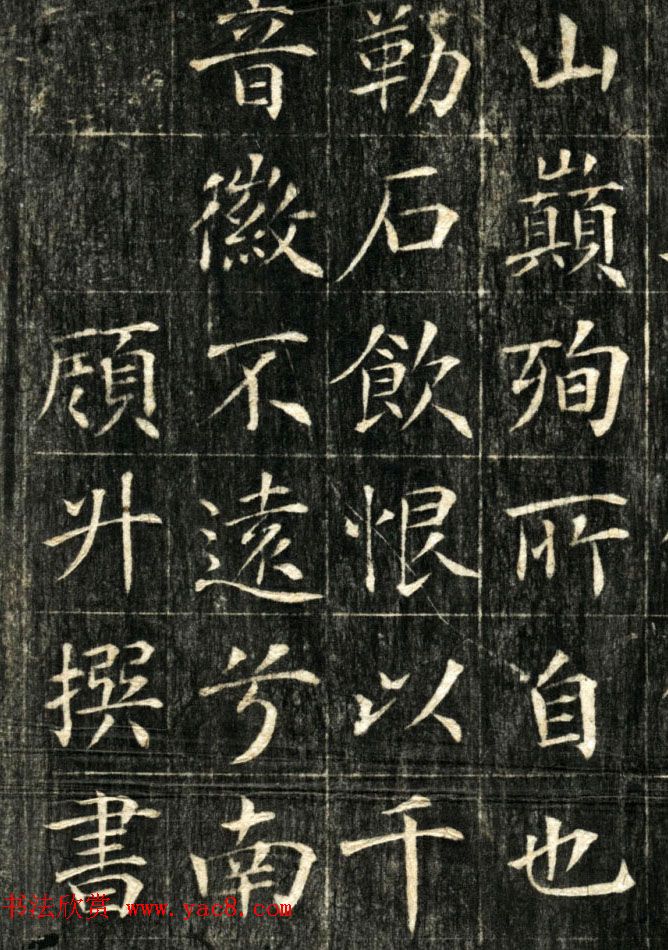 山巔殉所自也
勒石飲恨以千
音徽不遠兮南
頋升撰書
书法欣赏 www.yac8.com